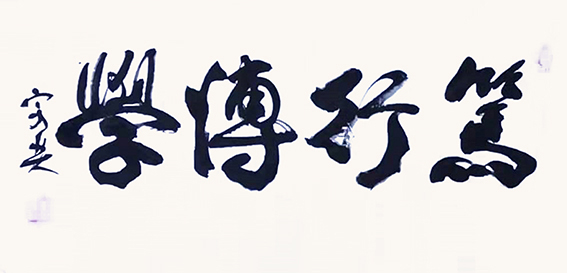 篤行博學